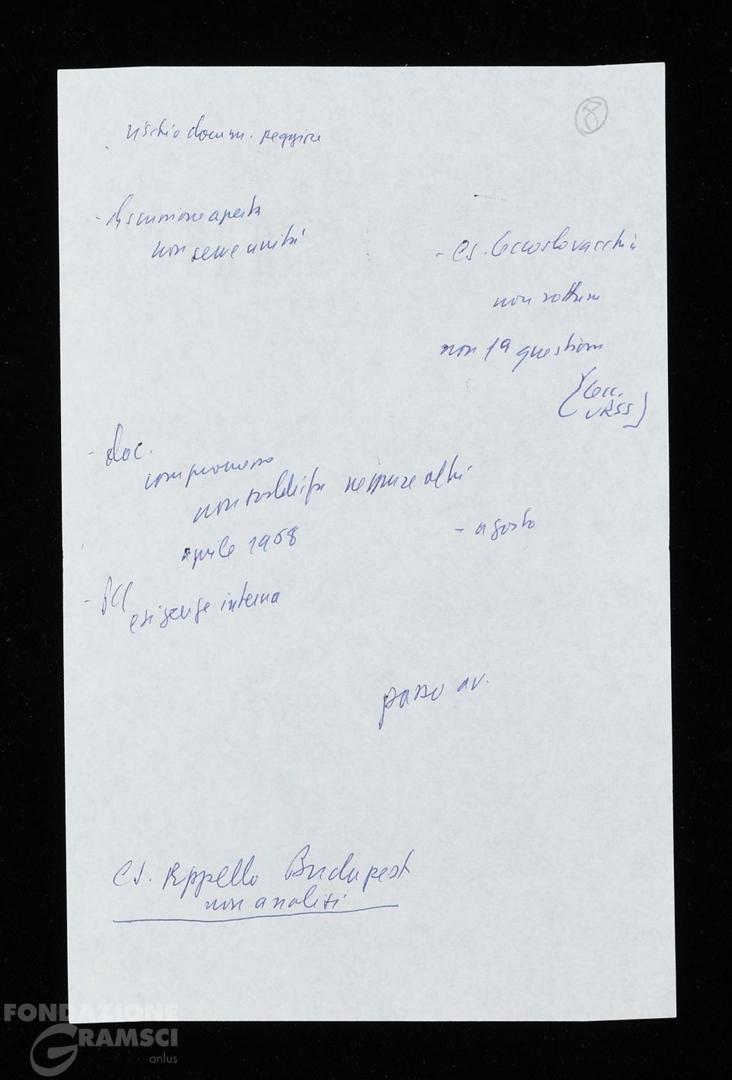 8
rischio docum. peggiore
- discussione aperta
non serve unità
- Es. Cecoslovacchia
non rottura
non 1ª questione
(Cecc.
URSS)
- doc.
compromesso
non soddisfa neppure altri
aprile 1968
- agosto
- PCI
esigenze interna
passo av.
Es. Appello Budapest
non analisi
FONDAZIONE
GRAMSCI
onlus